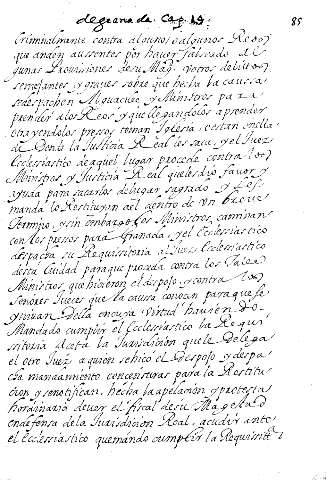 de granada. Cap. 19. 85
Criminalmente contra algunos o algunos Reos
que anden aussentes por haver falseado al
gunas Provisiones de su Mag. y otros delitos
semejantes, y graves sobre que hecha la caussa
se despachen Alguaciles y Ministros para
prender a los Reos, y que llegandolos a prender
otra vendolos pressos toman Iglesia, o estan en ella
de donde la Justicia Real les saca, y el Juez
Ecclesiastico de aquel lugar proceda contra los
Ministros, y Justicia Real que les dio favor y
ayuda para sacarlos de lugar sagrado y les
manda lo Restituyan alli dentro de un breve
termino, y sin embargo los Ministros caminan
con los pressos para Granada, y el Ecclesiastico
despacha su Requisitoria al Juez Ecclesiastico
desta Ciudad para que proceda contra los tales
Ministros, que hicieron el despojo, y contra los
Señores Jueces que la caussa conocen para que se
inivan della en cuya virtud haviendo
Mandado cumplir el Ecclesiastico la Requi
sitoria aceta la Jurisdicion que le delega
el otro Juez, a quien se hiço el Despojo, y despa
cha mandamiento con censuras para la Restitu
cion, y se notifican, hecha la apelacion, y protesta
hordinaria deve el fiscal de su Magestad
en defensa de la Jurisdicion Real, acudir ante
el Ecclesiastico que mando cumplir la Requisit